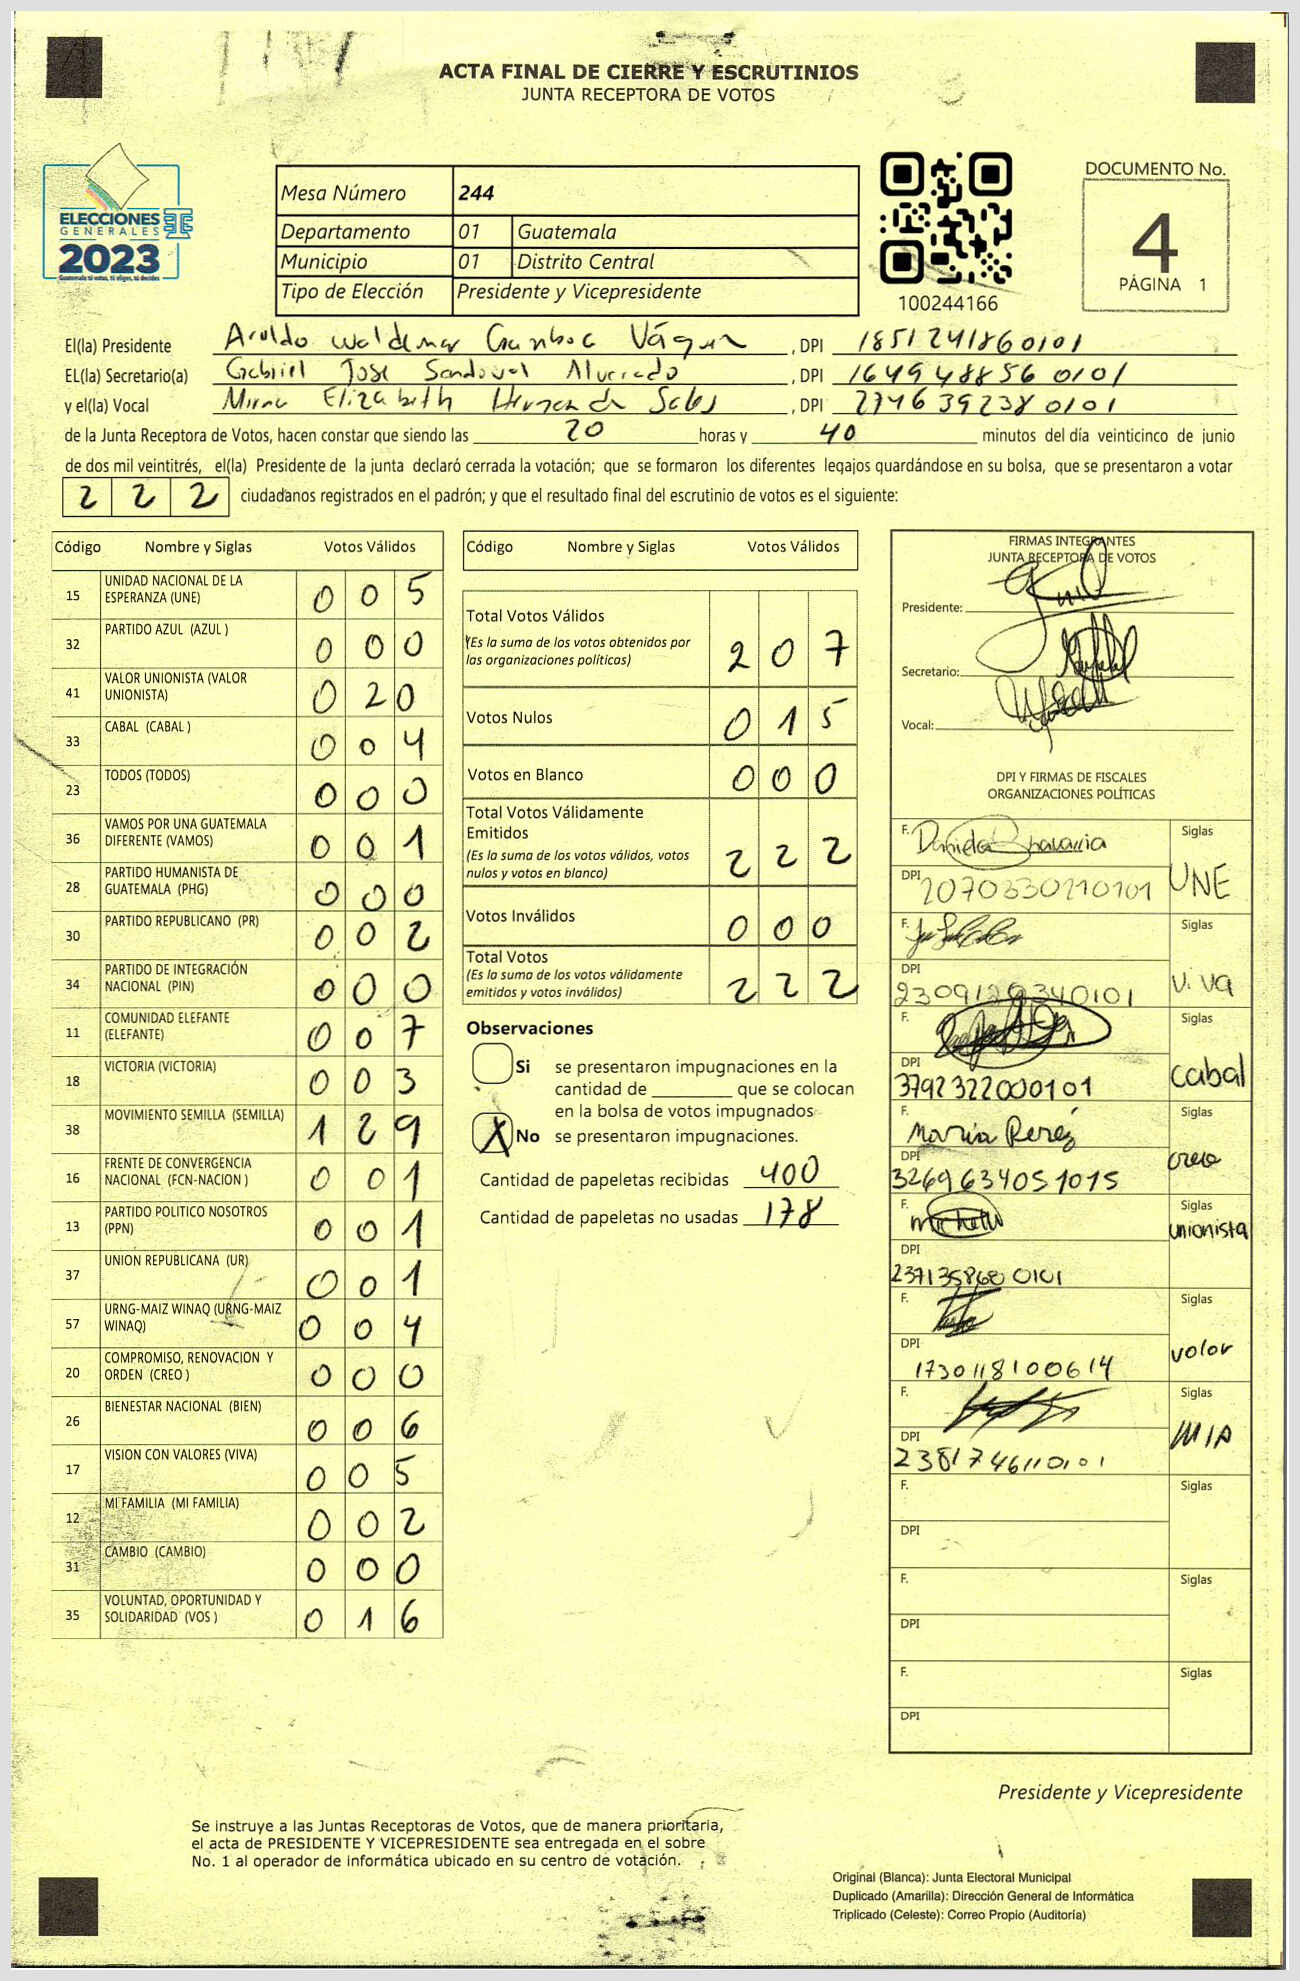 ACTA FINAL DE CIERRE Y ESCRUTINIOS
JUNTA RECEPTORA DE VOTOS
ELECCIONES
GENERALES
2023
Guatemala tú votas, tú eliges, tú decides
Mesa Número 244
Departamento 01 Guatemala
Municipio 01 Distrito Central
Tipo de Elección Presidente y Vicepresidente
100244166
DOCUMENTO No.
4
PÁGINA 1
El(la) Presidente Aroldo Waldemar Gamboa Vásquez, DPI 1851241860101
EL(la) Secretario(a) Gabriel Jose Sandoval Alvarado, DPI 1649488560101
y el(la) Vocal Mirna Elizabeth Hernandez Sales, DPI 2746392380101
de la Junta Receptora de Votos, hacen constar que siendo las 20 horas y 40 minutos del día veinticinco de junio
de dos mil veintitrés, el(la) Presidente de la junta declaró cerrada la votación; que se formaron los diferentes legajos guardándose en su bolsa, que se presentaron a votar
2 2 2 ciudadanos registrados en el padrón; y que el resultado final del escrutinio de votos es el siguiente:
Código Nombre y Siglas Votos Válidos
15 UNIDAD NACIONAL DE LA ESPERANZA (UNE) 0 0 5
32 PARTIDO AZUL (AZUL ) 0 0 0
41 VALOR UNIONISTA (VALOR UNIONISTA) 0 2 0
33 CABAL (CABAL ) 0 0 4
23 TODOS (TODOS) 0 0 0
36 VAMOS POR UNA GUATEMALA DIFERENTE (VAMOS) 0 0 1
28 PARTIDO HUMANISTA DE GUATEMALA (PHG) 0 0 0
30 PARTIDO REPUBLICANO (PR) 0 0 2
34 PARTIDO DE INTEGRACIÓN NACIONAL (PIN) 0 0 0
11 COMUNIDAD ELEFANTE (ELEFANTE) 0 0 7
18 VICTORIA (VICTORIA) 0 0 3
38 MOVIMIENTO SEMILLA (SEMILLA) 1 2 9
16 FRENTE DE CONVERGENCIA NACIONAL (FCN-NACION ) 0 0 1
13 PARTIDO POLITICO NOSOTROS (PPN) 0 0 1
37 UNION REPUBLICANA (UR) 0 0 1
57 URNG-MAIZ WINAQ (URNG-MAIZ WINAQ) 0 0 4
20 COMPROMISO, RENOVACION Y ORDEN (CREO ) 0 0 0
26 BIENESTAR NACIONAL (BIEN) 0 0 6
17 VISION CON VALORES (VIVA) 0 0 5
12 MI FAMILIA (MI FAMILIA) 0 0 2
31 CAMBIO (CAMBIO) 0 0 0
35 VOLUNTAD, OPORTUNIDAD Y SOLIDARIDAD (VOS ) 0 1 6
Código Nombre y Siglas Votos Válidos
Total Votos Válidos
(Es la suma de los votos obtenidos por las organizaciones políticas) 2 0 7
Votos Nulos 0 1 5
Votos en Blanco 0 0 0
Total Votos Válidamente Emitidos
(Es la suma de los votos válidos, votos nulos y votos en blanco) 2 2 2
Votos Inválidos 0 0 0
Total Votos
(Es la suma de los votos válidamente emitidos y votos inválidos) 2 2 2
Observaciones
Si se presentaron impugnaciones en la
cantidad de ________ que se colocan
en la bolsa de votos impugnados
X No se presentaron impugnaciones.
Cantidad de papeletas recibidas 400
Cantidad de papeletas no usadas 178
FIRMAS INTEGRANTES
JUNTA RECEPTORA DE VOTOS
Presidente:
Secretario:
Vocal:
DPI Y FIRMAS DE FISCALES
ORGANIZACIONES POLÍTICAS
F. Daniela Chavarria Siglas
DPI 2070330210101 UNE
F. Siglas
DPI 2309129340101 Viva
F. Siglas
DPI 3792322000101 Cabal
F. Maria Perez Siglas
DPI 3269634051015 creo
F. Michelle Siglas
DPI 2371358680101 unionista
F. Siglas
DPI 1730118100614 valor
F. Siglas
DPI 2381746110101 MIA
F. Siglas
DPI
F. Siglas
DPI
F. Siglas
DPI
Presidente y Vicepresidente
Se instruye a las Juntas Receptoras de Votos, que de manera prioritaria,
el acta de PRESIDENTE Y VICEPRESIDENTE sea entregada en el sobre
No. 1 al operador de informática ubicado en su centro de votación.
Original (Blanca): Junta Electoral Municipal
Duplicado (Amarilla): Dirección General de Informática
Triplicado (Celeste): Correo Propio (Auditoría)